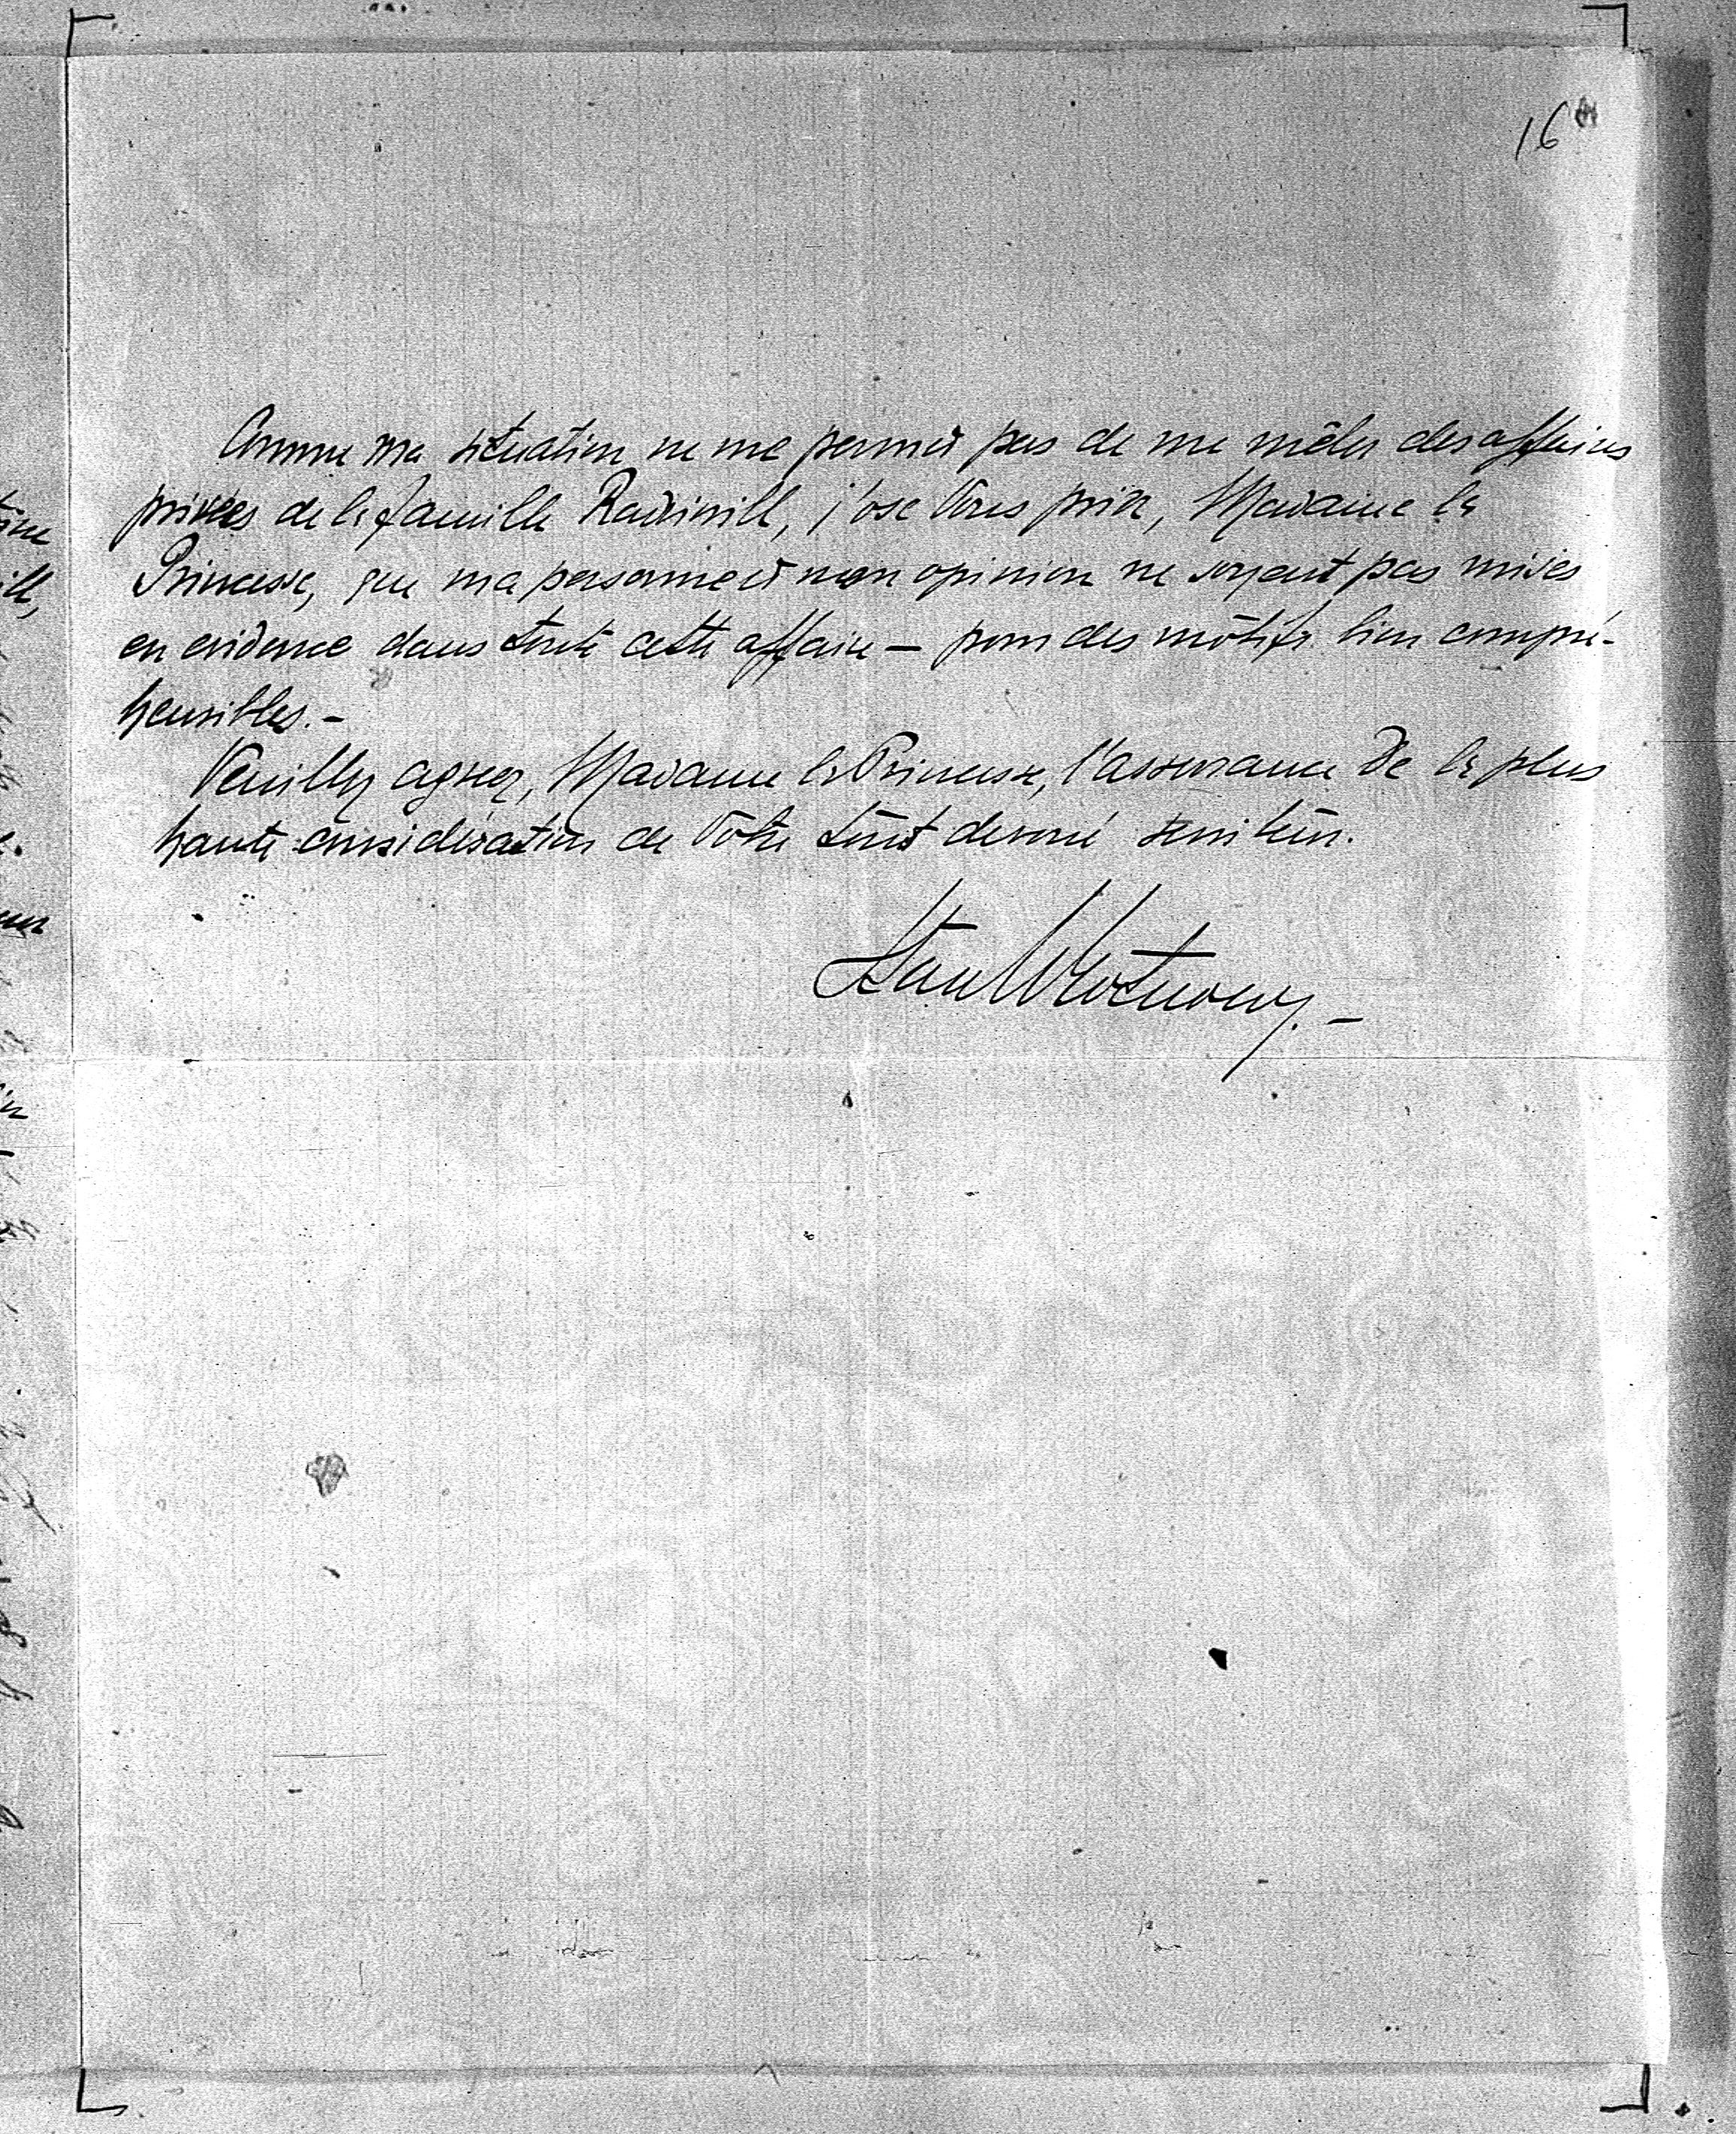 16
Comme ma situation ne me permet pas de me mêler des affaires
privées de la famille Radziwill, j'ose Vous prier, Madame la
Princesse, que ma personne et mon opinion ne soyent pas mises
en evidence dans toute cette affaire — pour des mótifs bien compré-
hensibles. –
Veuillez agréer, Madame la Princesse, l'assurance de la plus
haute considération de Vôtre tout devoué serviteur.
Stan